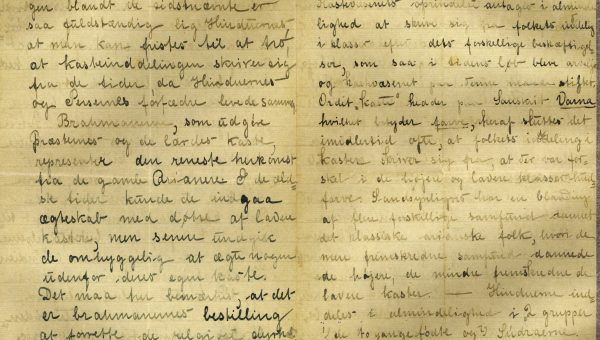 gen blandt de sidstnævnte er
saa fuldstændig lig Hinduernes
at man kan fristes til at tro,
at kasteinddelingen skriver sig
fra de tider, da Hinduernes
og Persernes forfædre levede sammen
Brahmanerne, som udgör
Præsternes og de lærdes kaste,
representerer den reneste herkomst
fra de gamle Arianere I de æld-
ste tider kunde de indgaa
ægteskab med dötre af lavere
kaster, men senere undgik
de omhyggelig at ægte nogen
udenfor deres egen kaste.
Det maa her bemærkes, at det
er brahmanernes bestilling
at forrette de religiöse
Kastevæsenets oprindelse antages i almin-
lighed at skrive sig fra folkets inddeling
i klasser efter dets forskjellige beskjæftigel-
ser, som saa i tidens löb blev
og kastevæsenet paa denne maade stiftet.
Ordet "Kaste" heder paa Sanskrit Varna
hvilket betyder farve, heraf sluttes det
imidlertid ogsaa, at folkets inddeling i
kaster skriver sig fra, at der var for-
skel i de höjere og lavere klassers hud-
farve. Sandsynligvis har en blanding
af flere forskellige samfund dannet
det klassiske ariske folk, hvori de
mere fremskredne samfund dannede
de höjere, de mindre fremskredne de
lavere kaster. — Hinduerne ind-
deles i almindelighed i 2 grupper
1) de to gange födte og 2) Sudraerne.